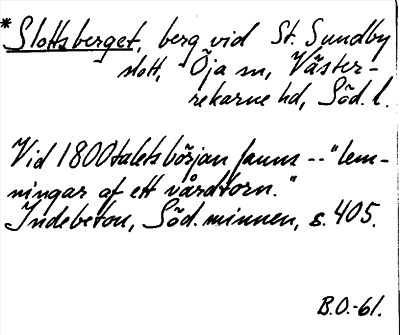 *Slottsberget, berg vid St. Sundby
slott, Öja sn, Väster-
rekarne hd, Söd. l.
Vid 1800talets början fanns -- "lem-
ningar af ett vårdtorn."
Indebetou, Söd. minnen, s. 405.
B.O.-61.